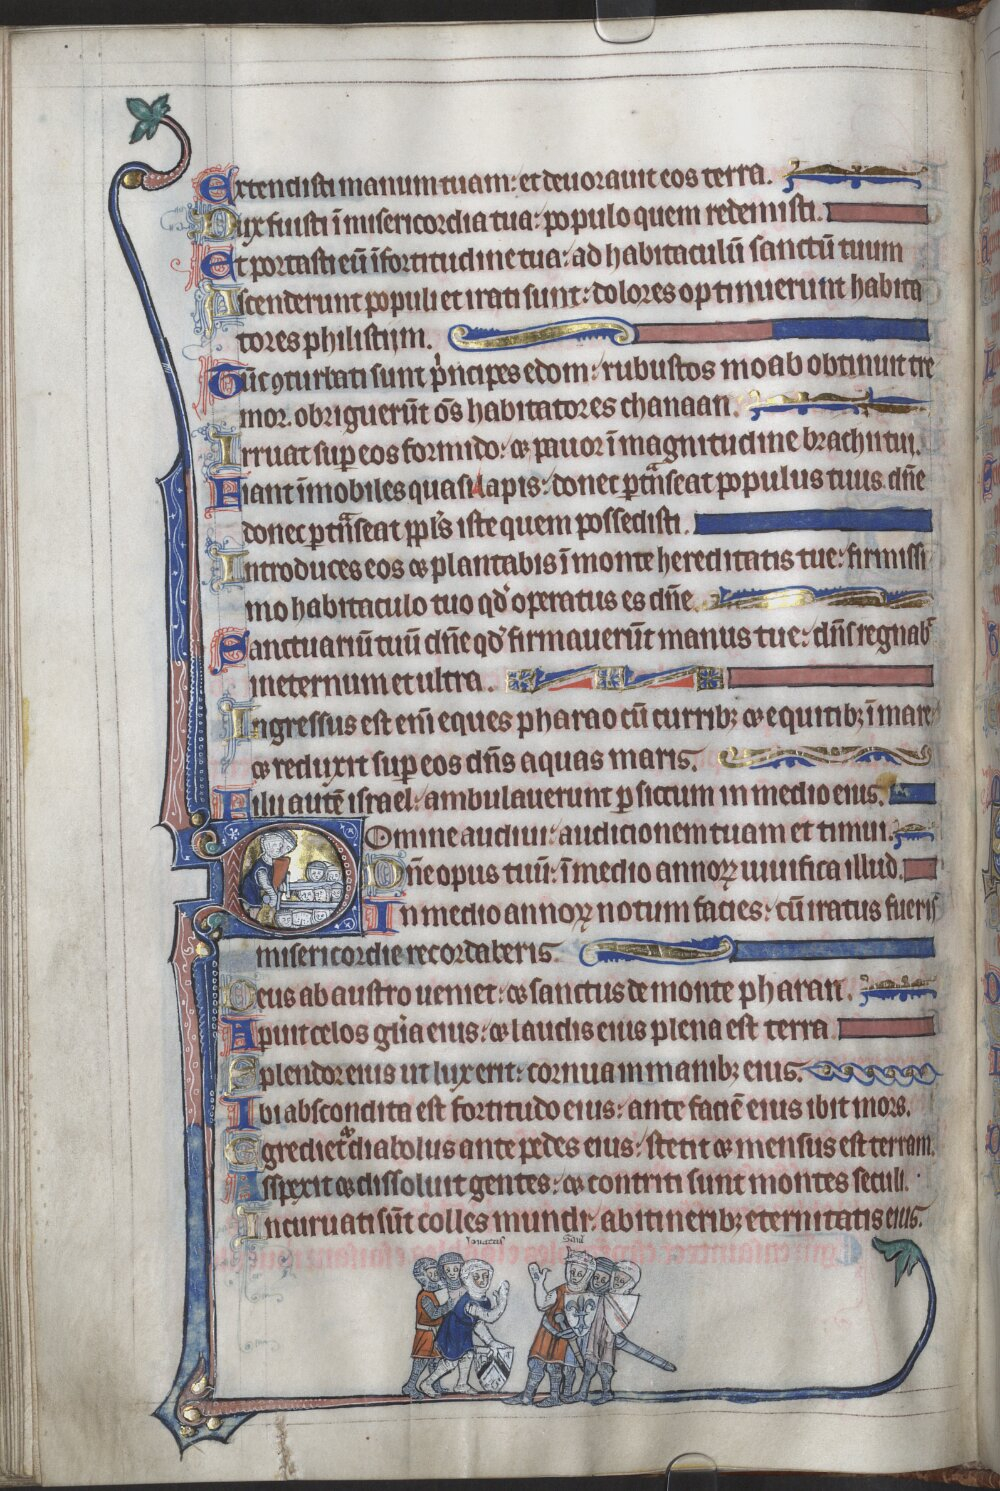 Extendisti manum tuam: et deuorauit eos terra.
Dux fuisti ī misericordia tua: populo quem redemisti.
Et portasti eū ī fortitudine tua: ad habitaculū sanctū tuum
Ascenderunt populi et irati sunt: dolores optinuerunt habita
tores philistiim.
Tūc ꝯturbati sunt p̃ncipes edom: rubustos moab obtinuit tre
mor. obriguerūt om̄s habitatores chanaan.
Irruat suꝑ eos formido: ⁊ pauor ī magnitudine brachii tui.
Fiant īmobiles quasi lapis: donec ꝑtñseat populus tuus dñe
donec ꝑtñseat ppl̃s iste quem possedisti.
Introduces eos ⁊ plantabis ī monte hereditatis tue: firmissi
mo habitaculo tuo qd̕ operatus es dñe
Sanctuariū tuū dñe qd̕ firmauerūt manus tue: dñs regnab̕
in eternum et ultra.
Ingressus est eni̅ eques pharao cū curribꝫ ⁊ equitibꝫ ī mare
⁊ reduxit suꝑ eos dñs aquas maris.
Filii autē israel: ambulauerunt ꝑ siccum in medio eius.
Domine audiui: audicionem tuam et timui.
Dñe opus tuū: ī medio annoꝝ uiuifica illud.
In medio annoꝝ notum facies: cū iratus fueris
misericordie recordaberis.
Deus ab austro ueniet: ⁊ sanctus de monte pharan.
Aperuit celos gl̃ia eius: ⁊ laudis eius plena est terra
Splendor eius ut lux erit: cornua in manibꝫ eius.
Ibi abscondita est fortitudo eius: ante faciē eius ibit mors.
Egrediet᷑ diabolus ante pedes eius: stetit ⁊ mensus est terram.
Aspexit ⁊ dissoluit gentes: ⁊ contriti sunt montes seculi.
Incuruati sūt colles mundi: ab itineribꝫ eternitatis eius.
Ionatas Saul